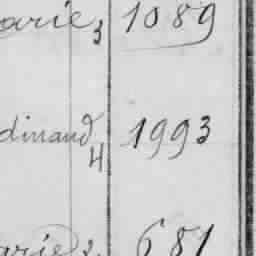 arie 3 1089
dinand 4 1993
arie 2 681